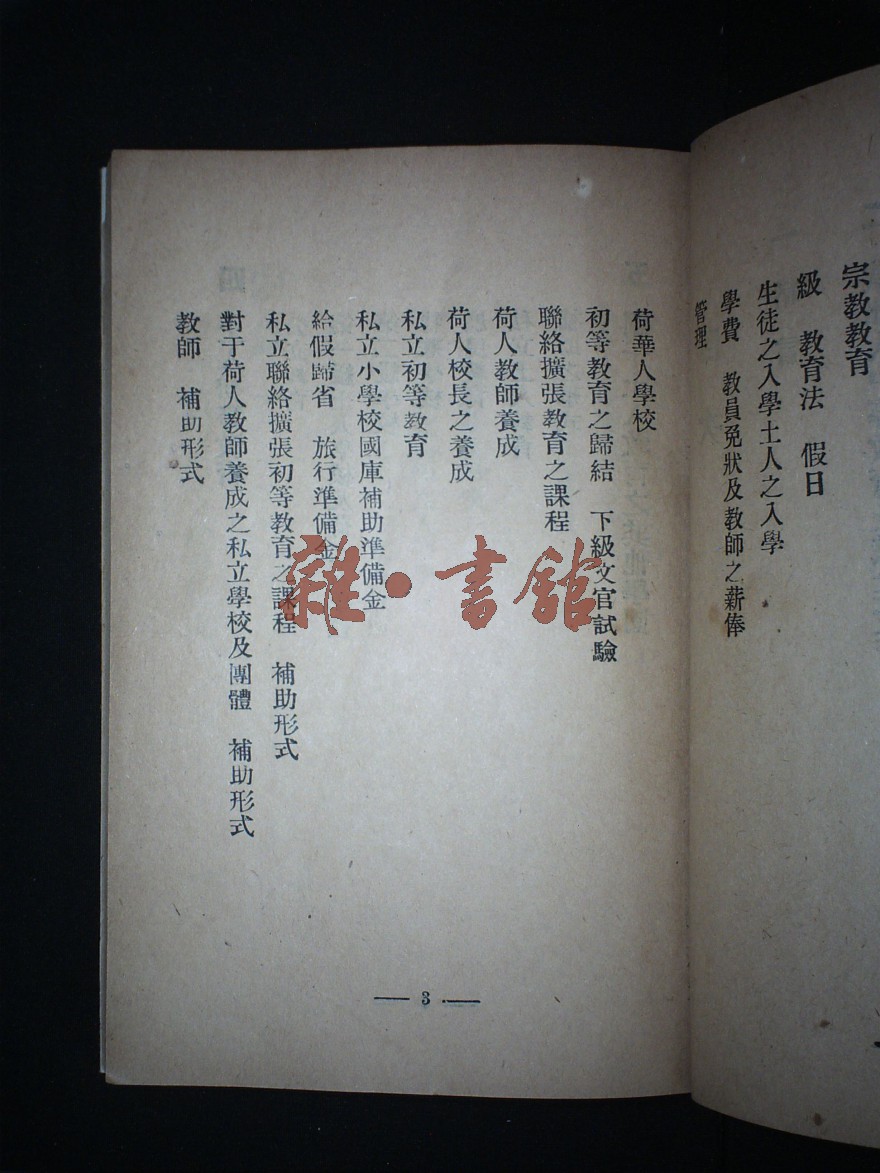 宗教教育
級　教育法　假日
生徒之入學土人之入學
學費　教員免狀及教師之薪俸
管理
荷華人學校
初等教育之歸結　下級文官試驗
聯絡擴張教育之課程
荷人教師養成
荷人校長之養成
私立初等教育
私立小學校國庫補助準備金
給假歸省　旅行準備金
私立聯絡擴張初等教育之課程　補助形式
對于荷人教師養成之私立學校及團體　補助形式
教師　補助形式
— 3 —
雜·書館